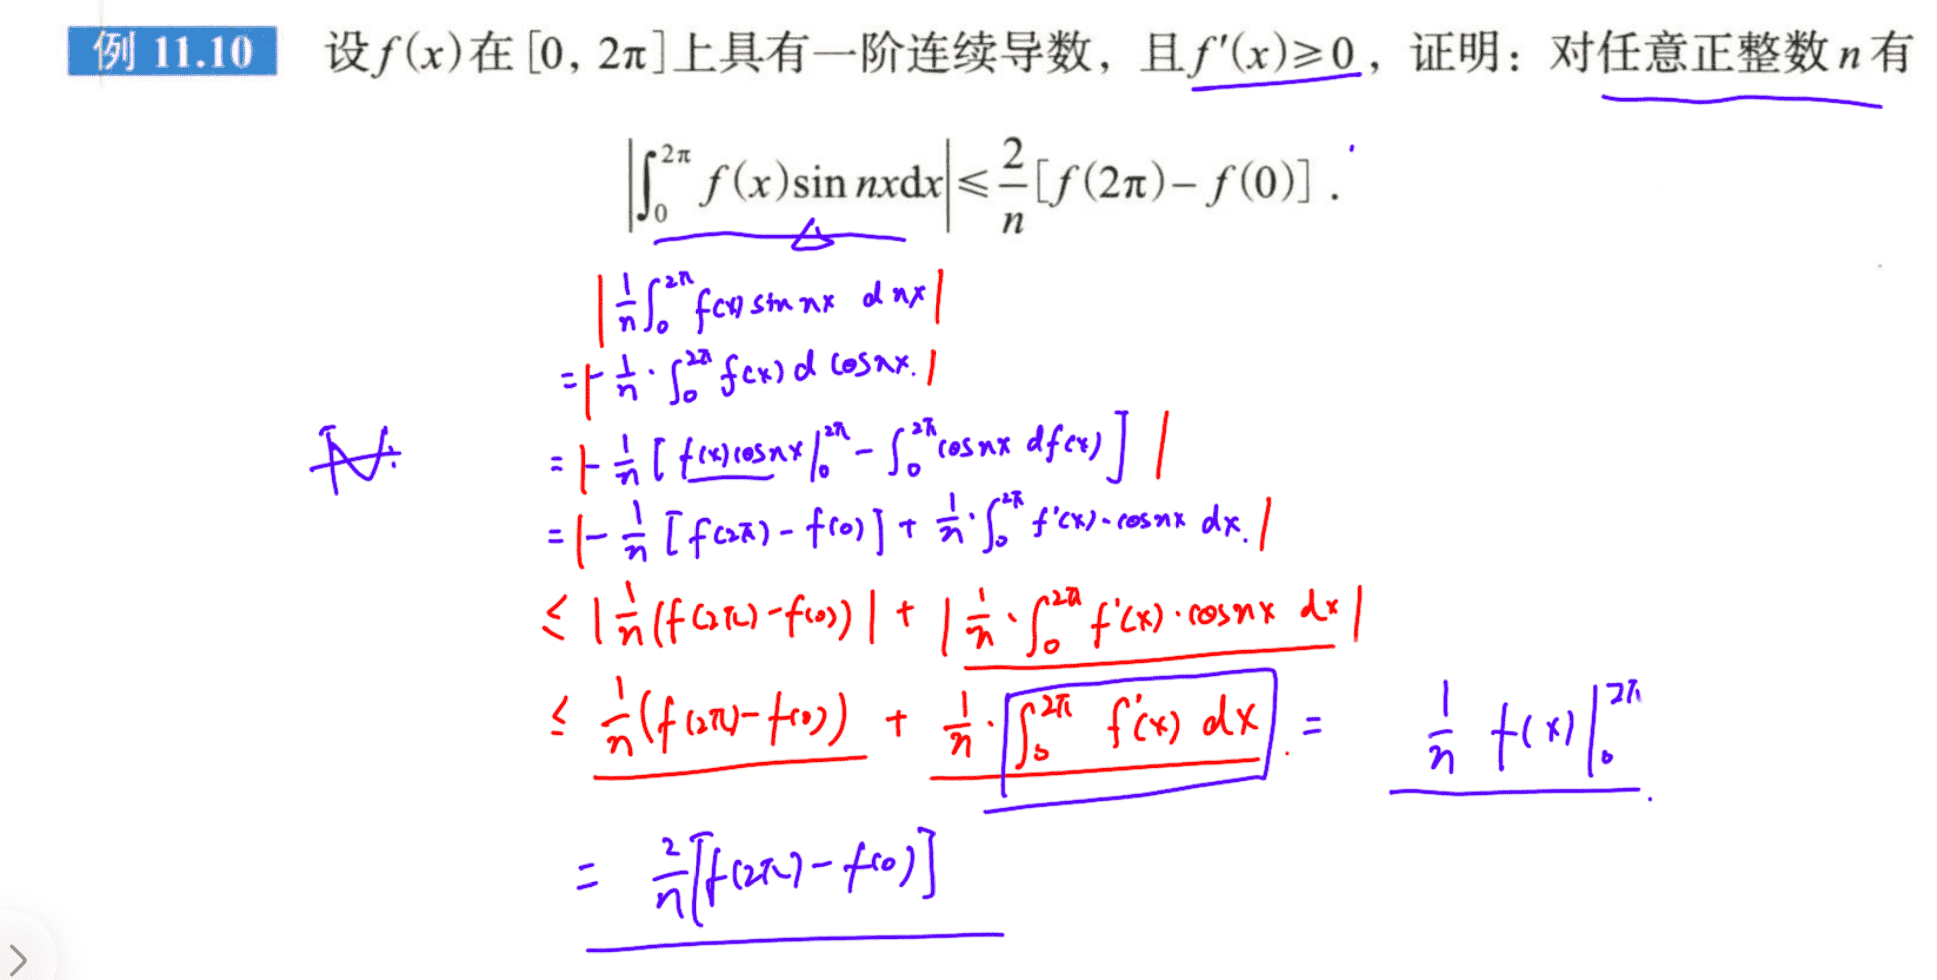 例 11.10 设f(x)在[0, 2π]上具有一阶连续导数，且f′(x)≥0，证明：对任意正整数n有
|∫₀^{2π} f(x)sin nxdx| ≤ 2/n [f(2π)−f(0)] .
|1/n ∫₀^{2π} f(x) sin nx d nx|
= |− 1/n · ∫₀^{2π} f(x) d cosnx.|
= |− 1/n [f(x)cosnx|₀^{2π} − ∫₀^{2π} cosnx df(x)]|
= |− 1/n [f(2π) − f(0)] + 1/n · ∫₀^{2π} f'(x) · cosnx dx.|
≤ |1/n (f(2π) − f(0))| + |1/n · ∫₀^{2π} f'(x) · cosnx dx|
≤ 1/n (f(2π) − f(0)) + 1/n · ∫₀^{2π} f'(x) dx. = 1/n f(x)|₀^{2π}.
= 2/n [f(2π) − f(0)]